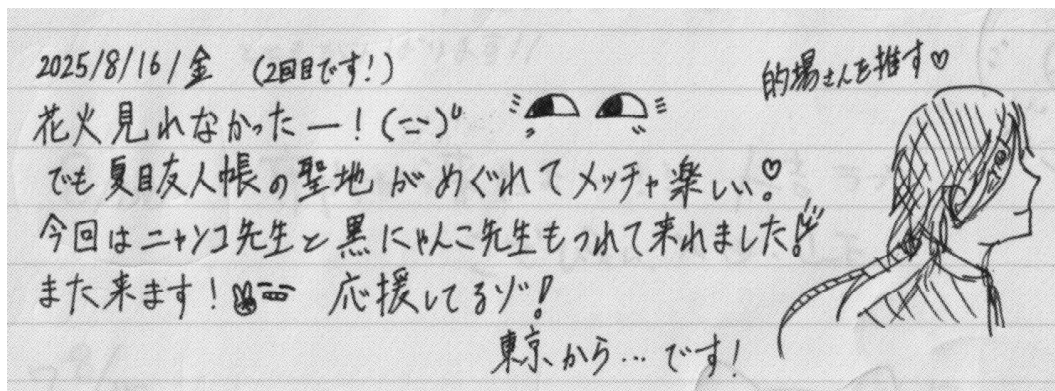 2025/8/16/金 (2回目です!)
的場さんを推す♡
花火見れなかったー!(ニニ)"
でも夏目友人帳の聖地がめぐれてメッチャ楽しい♡
今回はニャンコ先生と黒にゃんこ先生もつれて来れました!
また来ます! 応援してるゾ!
東京から…です!